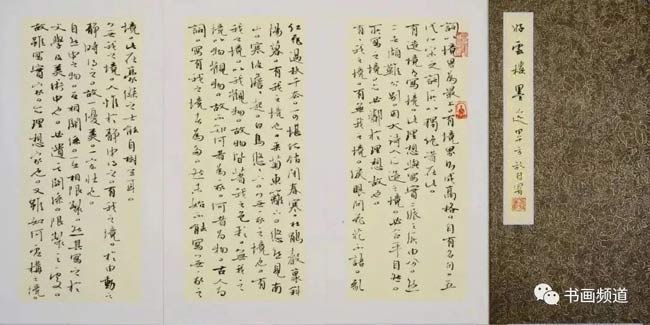 好雲樓墨迹
詞境界為最上。有境界則成高格。自有名句。五
代北宋之詞所以獨絕者在此。
有造境有寫境此理想與寫實二派之所由分。然
二者頗難分別。因大詩人所造之境必合乎自然。
所寫之境必鄰於理想故也。
有有我之境有無我之境淚眼問花花不語。亂
紅飛過秋千去。可堪孤館閉春寒。杜鵑聲裏斜
陽暮。有我之境也。采菊東籬下。悠然見南
山。寒波澹澹起。白鳥悠悠下。無我之境也。有
我之境。以我觀物。故物皆著我之色彩。無我之
境。以物觀物。故不知何者為我。何者為物。古人為
詞。寫有我之境者為多。然未始不能寫無我之
境。此在豪傑之士能自樹立耳。
無我之境。人惟於靜中得之。有我之境。於由動之
靜時得之。故一優美。一宏壯也。
自然中之物。互相關係。互相限製。然其寫之於
文學及美術中也。必遺其關係。限製之處。
故雖寫實家。亦理想家也。又雖如何虛構之境。
书画频道